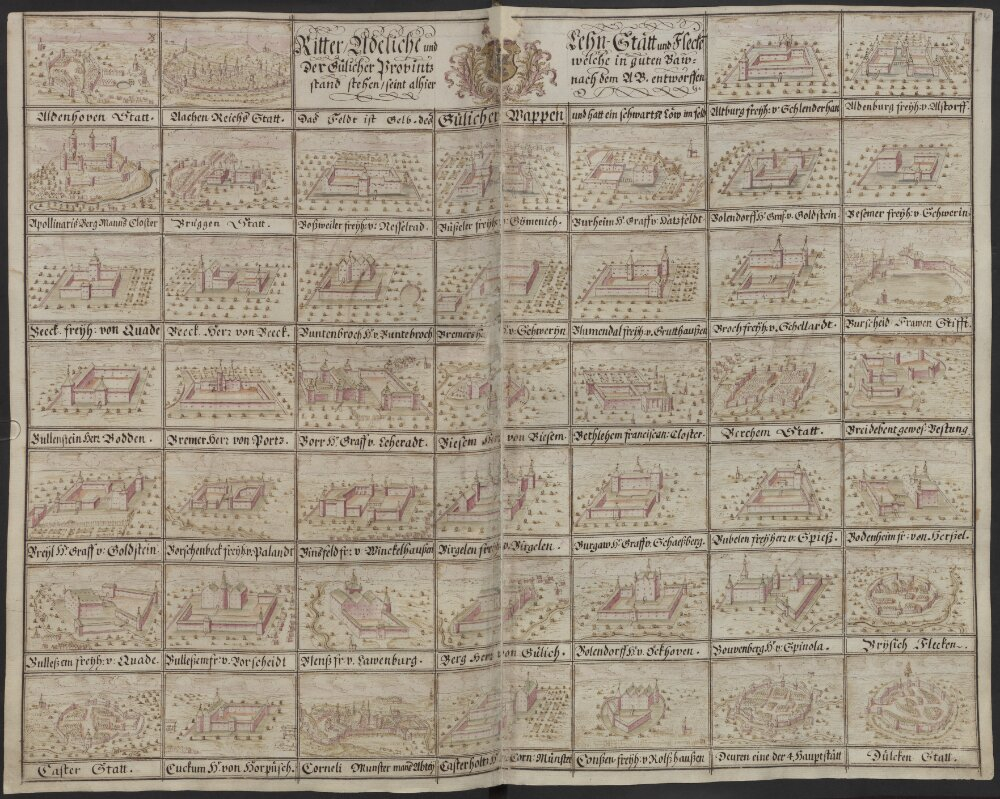 Ritter, Adeliche und
Der Gülicher Provintz
stand stehen, seint alhier
Lehn-Stätt und Fleck
welche in guten Baw-
nach dem A.B. entworffen
Aldenhoven Statt.
Aachen Reichs Statt.
Das Feldt ist Gelb. des
Gülicher Wappen
und hatt ein schwartze Löw im feld
Altburg freyh: v. Schlenderhan
Aldenburg freyh: v. Alstorff.
Apollinaris Berg Manns Closter
Brüggen Statt.
Boßweiler freyh: v: Nesselrad.
Büßeler freyh: v. Gömenich.
Burheim Hr. Graff v. Hatzfeldt
Bolendorff Hr. Graf. v. Goldstein.
Besemer freyh: v: Schwerin.
Beeck. freyh: von Quade
Beeck. Herr von Beeck.
Buntenbroch Hr. v. Buntebroch
v. Schweryn
Blumendal freyh. v. Grutthaußen
Broch freyh. v. Schellardt.
Burscheid Frawen Stifft.
Bullenstein Herr Bodden.
Bremer Herr von Portz.
Borr Hr. Graff v. Leheradt.
Biesem Herr von Biesem.
Bethlehem franciscan: Closter.
Berchem Statt.
Breidebent gewes: Vestung
Breyl Hr. Graff v: Goldstein.
Borschenbeck freyh. v: Palandt
Binsfeld fr: v Winckelhausen
Birgelen freyh v. Birgelen.
Burgaw Hr. Graff v. Schaeßberg.
Bubelen freyherr v. Spieß.
Bodenheim fr: von Herßel.
Bulleßem freyh: v. Quade.
Bulleßem fr: v. Vorscheidt
Blenß fr: v. Lawenburg.
Berg Herr von Gülich.
Bolendorff Hr. v. Eckhoven.
Bouvenberg Hr. v: Spinola.
Brysich Flecken.
Caster Statt.
Cuckum Hr. von Horpusch.
Corneli Munster mans Abtey
Casterholtz Hr. Corn: Münster
Conßen freyh: v Rolßhaußen
Deuren eine der 4. Hauptstätt
Dülcken Statt.